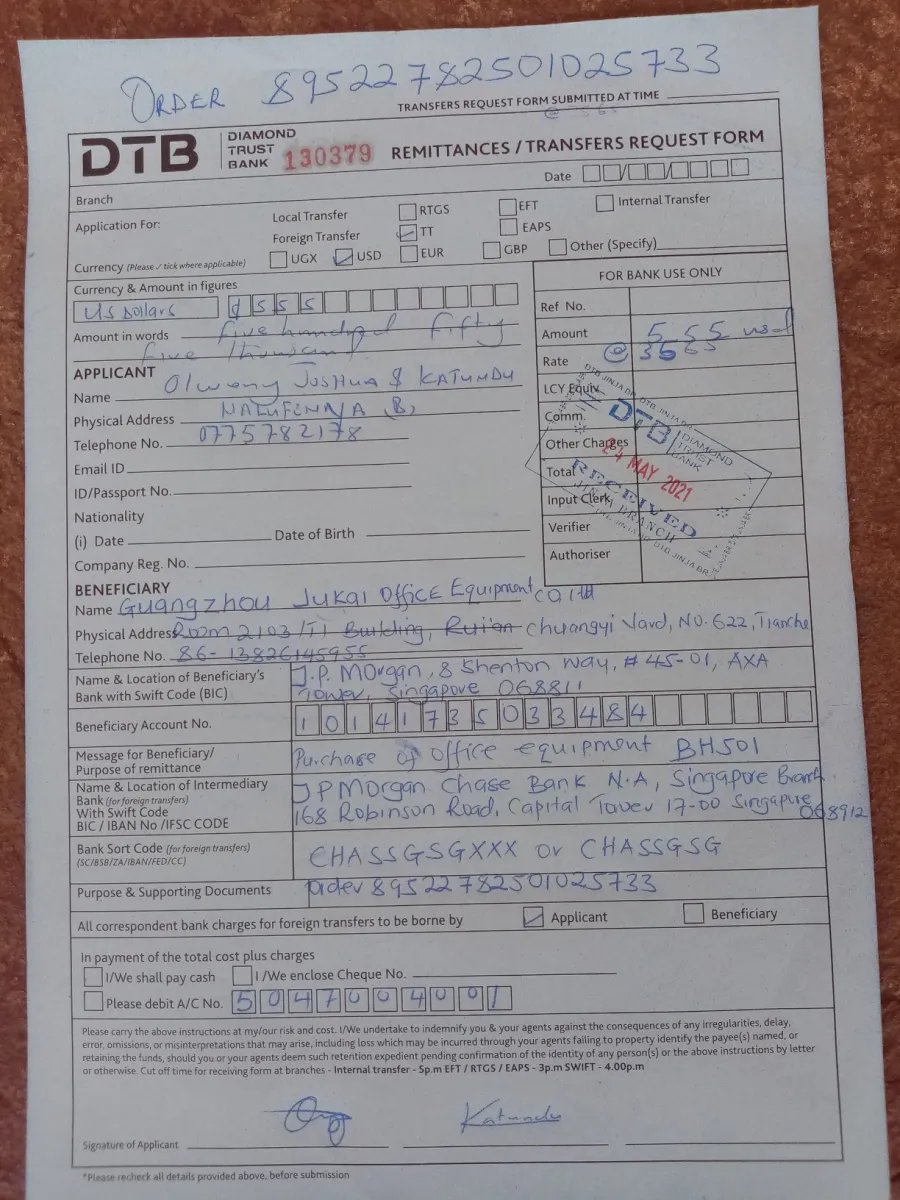 ORDER 89522782501025733
TRANSFERS REQUEST FORM SUBMITTED AT TIME
DTB DIAMOND TRUST BANK 130379 REMITTANCES / TRANSFERS REQUEST FORM
Date
Branch
Application For: Local Transfer RTGS EFT Internal Transfer
Foreign Transfer TT EAPS
Currency (Please ✓ tick where applicable) UGX USD EUR GBP Other (Specify)
Currency & Amount in figures
US Dollars 555
Amount in words five hundred fifty
five
FOR BANK USE ONLY
Ref No.
Amount 555 usd
Rate @
LCY Equiv.
Comm.
Other Charges
Total
Input Clerk
Verifier
Authoriser
DTB DIAMOND TRUST BANK
24 MAY 2021
RECEIVED
JINJA BRANCH
APPLICANT
Name Olweny Joshua & KATUNDU
Physical Address B,
Telephone No. 0775782178
Email ID
ID/Passport No.
Nationality
(i) Date Date of Birth
Company Reg. No.
BENEFICIARY
Name Guangzhou Jukai Office Equipment co ltd
Physical Address Room 2103/T1 Building, Ruian chuangyi Yard, NO. 622, Tianhe
Telephone No. 86-13826145955
Name & Location of Beneficiary's Bank with Swift Code (BIC)
J.P. Morgan, 8 Shenton Way, #45-01, AXA
Tower, Singapore 068811
Beneficiary Account No. 10141735033484
Message for Beneficiary/ Purpose of remittance
Purchase of office equipment BH501
Name & Location of Intermediary
Bank (for foreign transfers)
With Swift Code
BIC / IBAN No /IFSC CODE
JPMorgan Chase Bank N.A, Singapore Branch
168 Robinson Road, Capital Tower 17-00 Singapore 068912
Bank Sort Code (for foreign transfers)
(SC/BSB/ZA/IBAN/FED/CC)
CHASSGSGXXX or CHASSGSG
Purpose & Supporting Documents order 89522782501025733
All correspondent bank charges for foreign transfers to be borne by Applicant Beneficiary
In payment of the total cost plus charges
I/We shall pay cash I /We enclose Cheque No.
Please debit A/C No. 5047004001
Please carry the above instructions at my/our risk and cost. I/We undertake to indemnify you & your agents against the consequences of any irregularities, delay,
error, omissions, or misinterpretations that may arise, including loss which may be incurred through your agents failing to property identify the payee(s) named, or
retaining the funds, should you or your agents deem such retention expedient pending confirmation of the identity of any person(s) or the above instructions by letter
or otherwise. Cut off time for receiving form at branches - Internal transfer - 5p.m EFT / RTGS / EAPS - 3p.m SWIFT - 4.00p.m
Katundu
Signature of Applicant
*Please recheck all details provided above, before submission